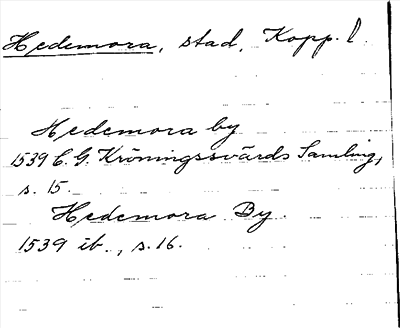 Hedemora, stad, Kopp. l.
Hedemora by
1539 C. G. Kröningssvärds Samling,
s. 15.
Hedemora By.
1539 ib., s. 16.